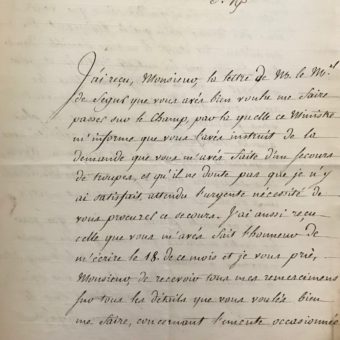 J'ai reçu, Monsieur, la lettre de Mr. le Mal.
de Segur que vous avés bien voulu me faire
passer sur le champ, par la quelle ce Ministre
m'informe que vous l'avés instruit de la
demande que vous m'avés faite d'un secours
de troupes, et qu'il ne doute pas que je n'y
ai satisfait, attendu l'urgente nécessité de
vous procurer ce secours. J'ai aussi reçu
celle que vous m'avés fait l'honneur de
m'écrire le 18. de ce mois et je vous prie,
Monsieur, de recevoir tous mes remercimens
sur tous les détails que vous voulés bien
me faire, concernant l'émeute occasionnée